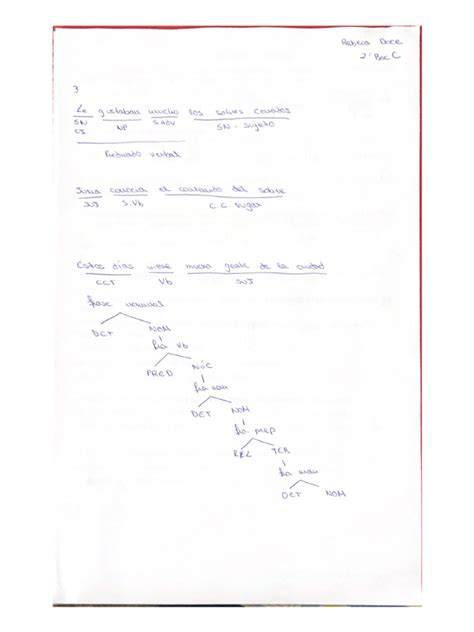 Rebeca Doce
2º Bac C
3
Le gustaban mucho los sobres cerrados
SN NP SADV SN - Sujeto
CI
Predicado verbal
Juna conocía el contenido del sobre
SUJ S.Vb C C lugar
Estos días viene mucha gente de la ciudad
CCT Vb SUJ
frase nominal
DET NOM
fra Vb
PRED NÚC
fra nom
DET NOM
fra prep
REL TER
fra nom
DET NOM